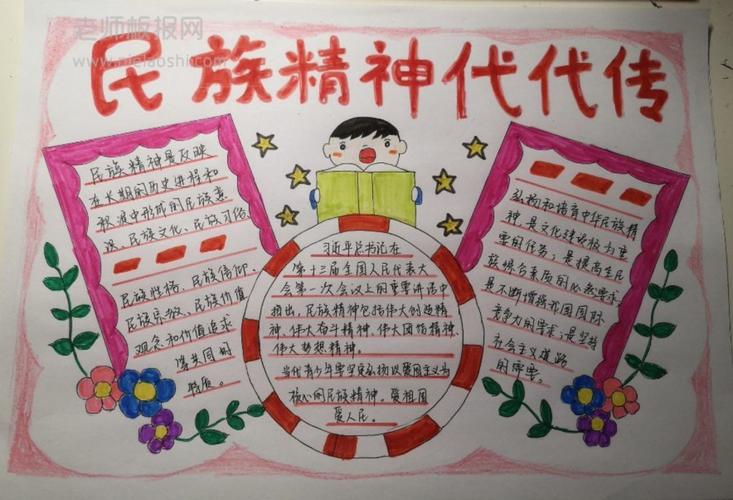 老师板报网
www.qielaoshi.com
民族精神代代传
民族精神是反映
在长期的历史进程和
积淀中形成的民族意
识、民族文化、民族习俗、
民族性格、民族信仰、
民族宗教、民族价值
观念和价值追求
等共同的
特质。
习近平总书记在
第十三届全国人民代表大
会第一次会议上的重要讲话中
指出，民族精神包括伟大创造精
神、伟大奋斗精神、伟大团结精神、
伟大梦想精神。
当代青少年要坚定弘扬以爱国主义为
核心的民族精神。爱祖国
爱人民。
弘扬和培育中华民族精
神，是文化建设极为重
要的任务；是提高全民
族综合素质的必然要求
是不断增强我国国际
竞争力的要求；是坚持
社会主义道路
的需要。